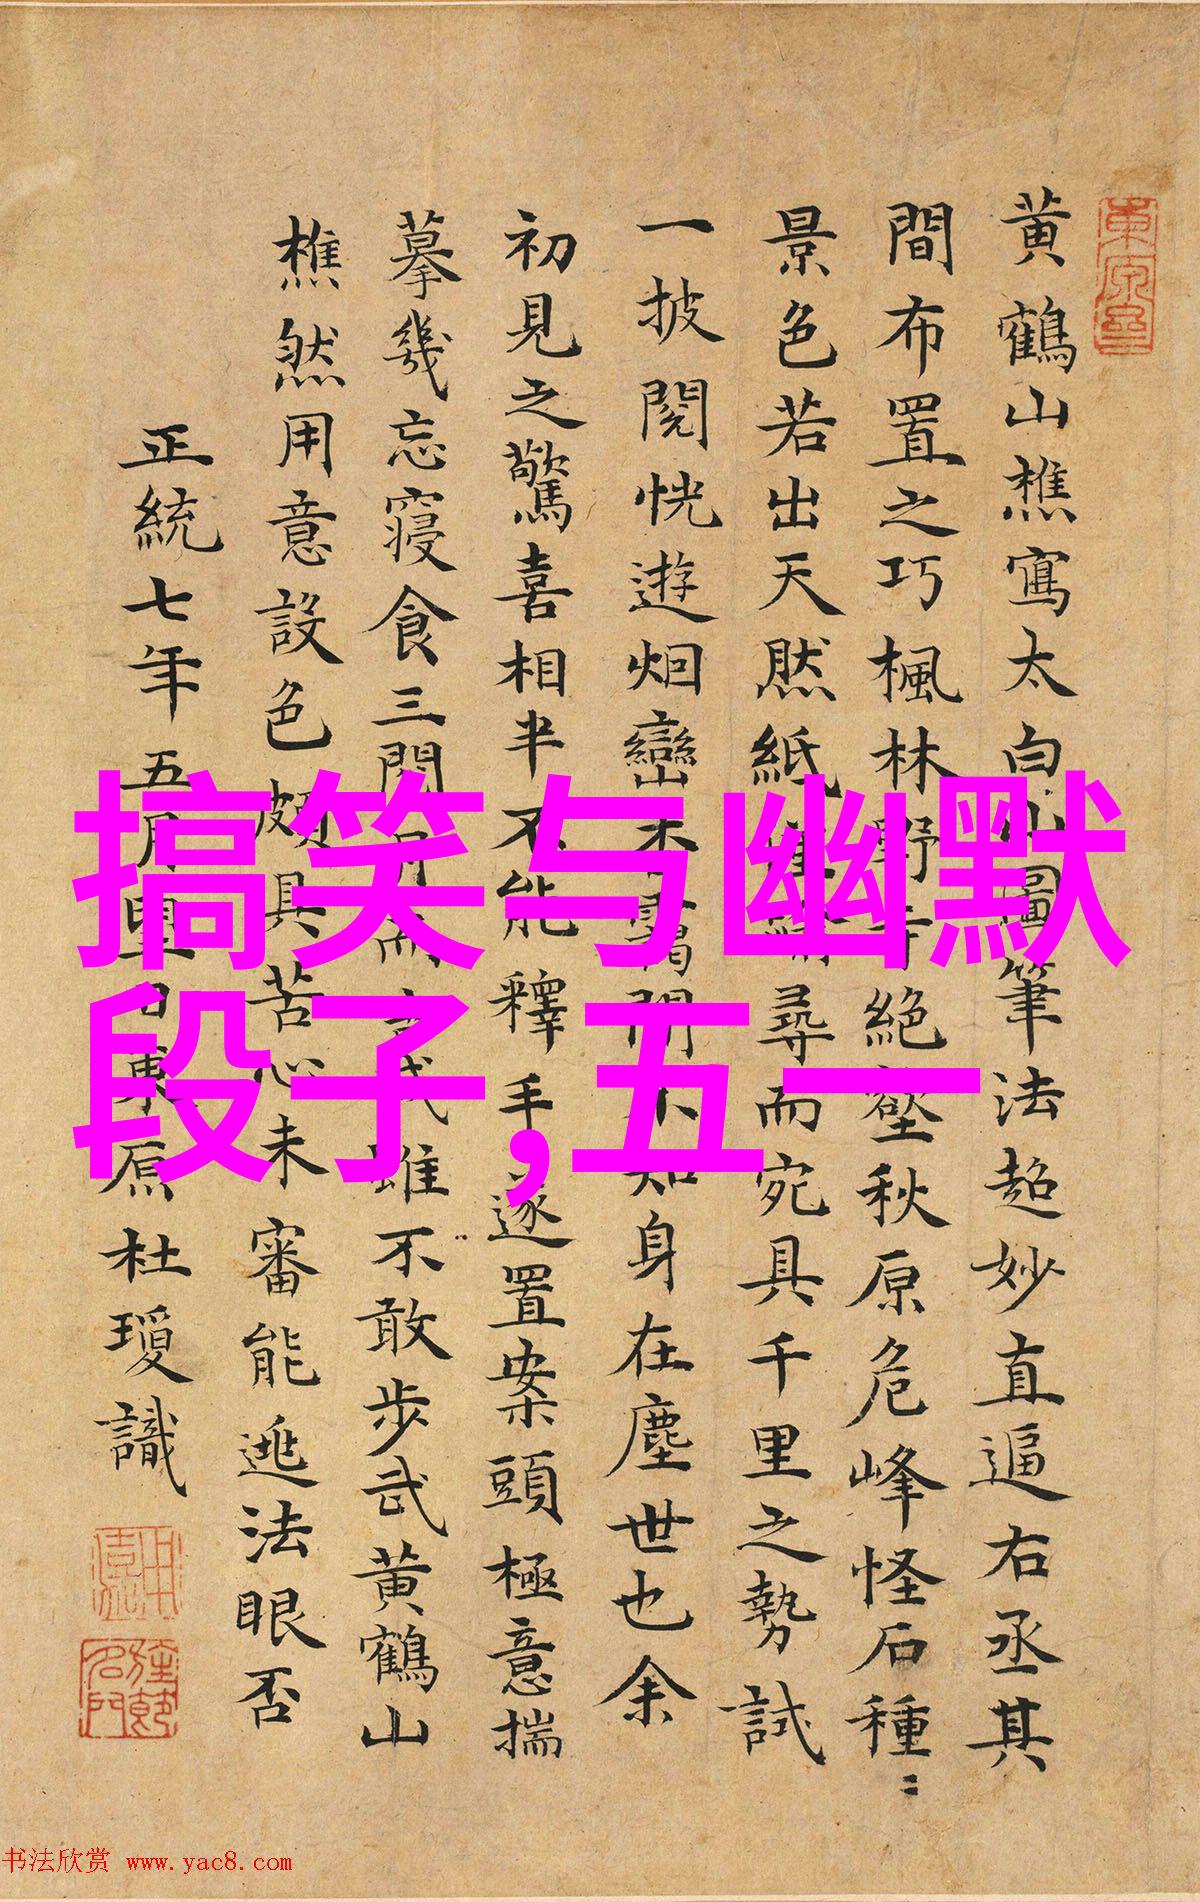 黄鶴山樵寫太白山圖筆法超妙直逼右丞其
間布置之巧楓林野寺絶壑秋原危峰怪石種〻
景色若出天然紙 尋而宛具千里之勢試
一披閱恍遊烟巒 間不知身在塵世也余
初見之驚喜相半不能釋手遂置案頭極意揣
摹幾忘寢食三閱月而 成雖不敢步武黄鶴山
樵然用意設色頗具苦心未審能逃法眼否
正統七年五月望日東原杜瓊識
搞笑与幽默
段子,五一
书法欣赏 www.yac8.com